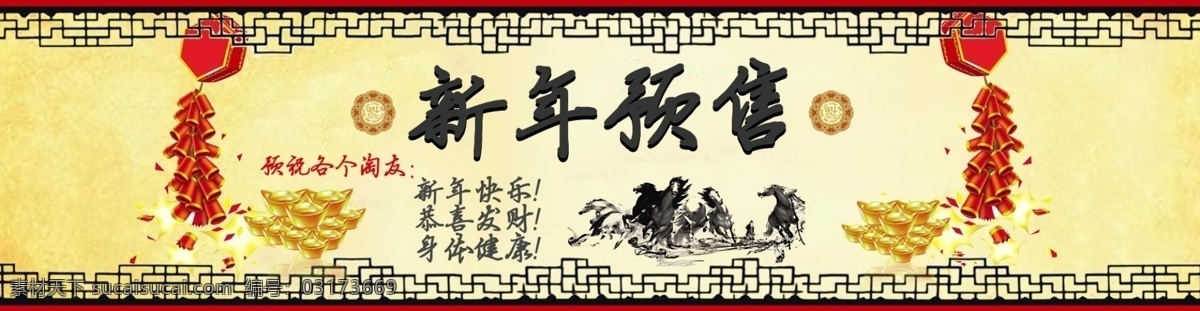 新年预售
预祝各个淘友:
新年快乐!
恭喜发财!
身体健康!
素材天下 sucaisucai.com 编号: 03173669